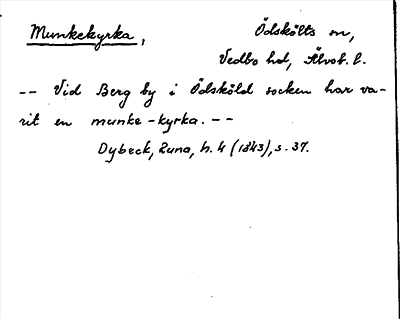 Munkekyrka, Ödskölts sn,
Vedbo hd, Älvsb. l.
-- Vid Berg by i Ödsköld socken har va-
rit en munke-kyrka. --
Dybeck, Runa, h. 4 (1843), s. 37.